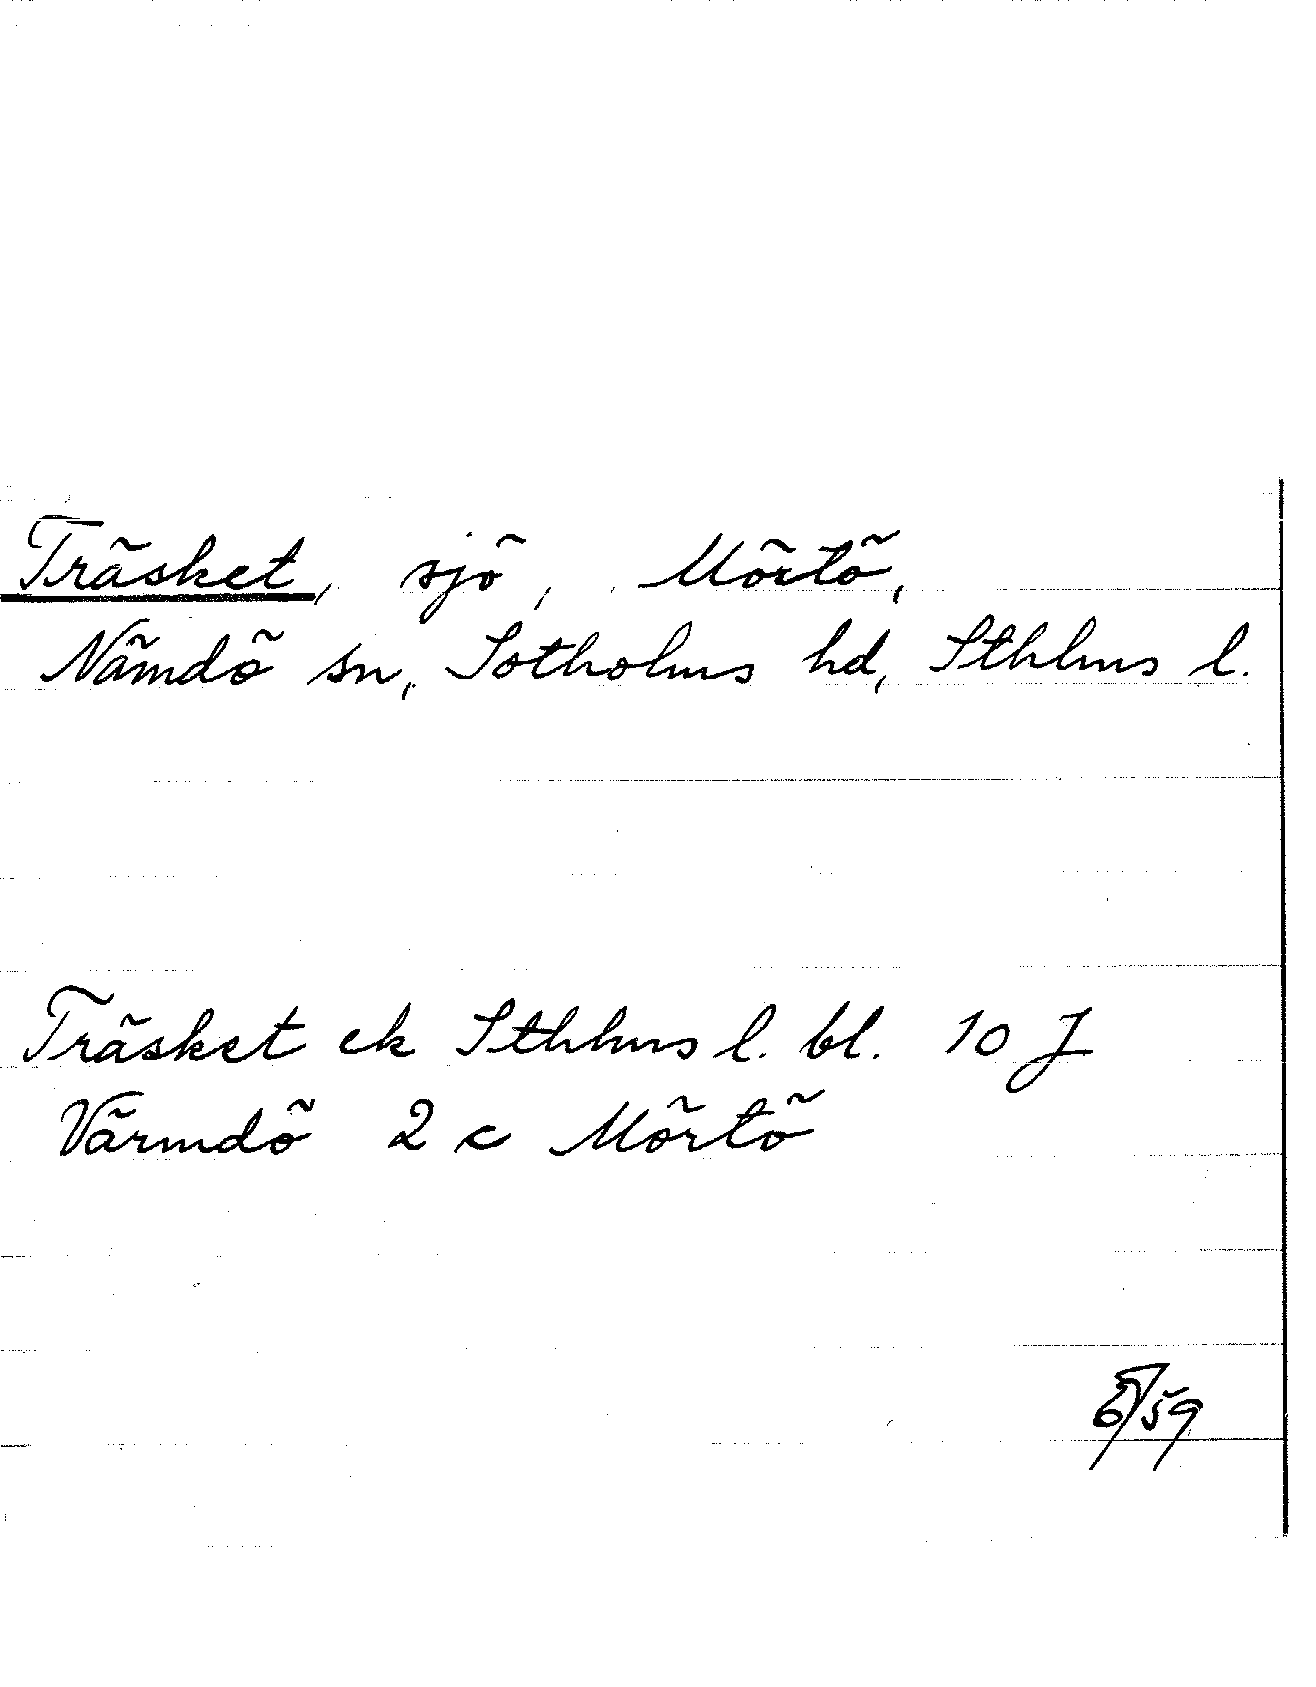 Träsket, sjö, Mörtö,
Nämdö sn, Sotholms hd, Sthlms l.
Träsket ek Sthlms l. bl. 10 J
Värmdö 2 c Mörtö
59